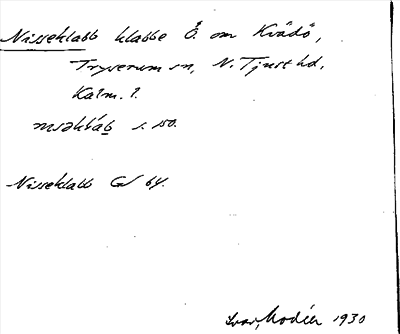 Nisseklabb klabbe Ö. om Kvädö,
Tryserum sn, N. Tjust hd,
Kalm. l.
nisəkláb s. 150.
Nisseklabb GS 64.
Ivar Modéer 1930